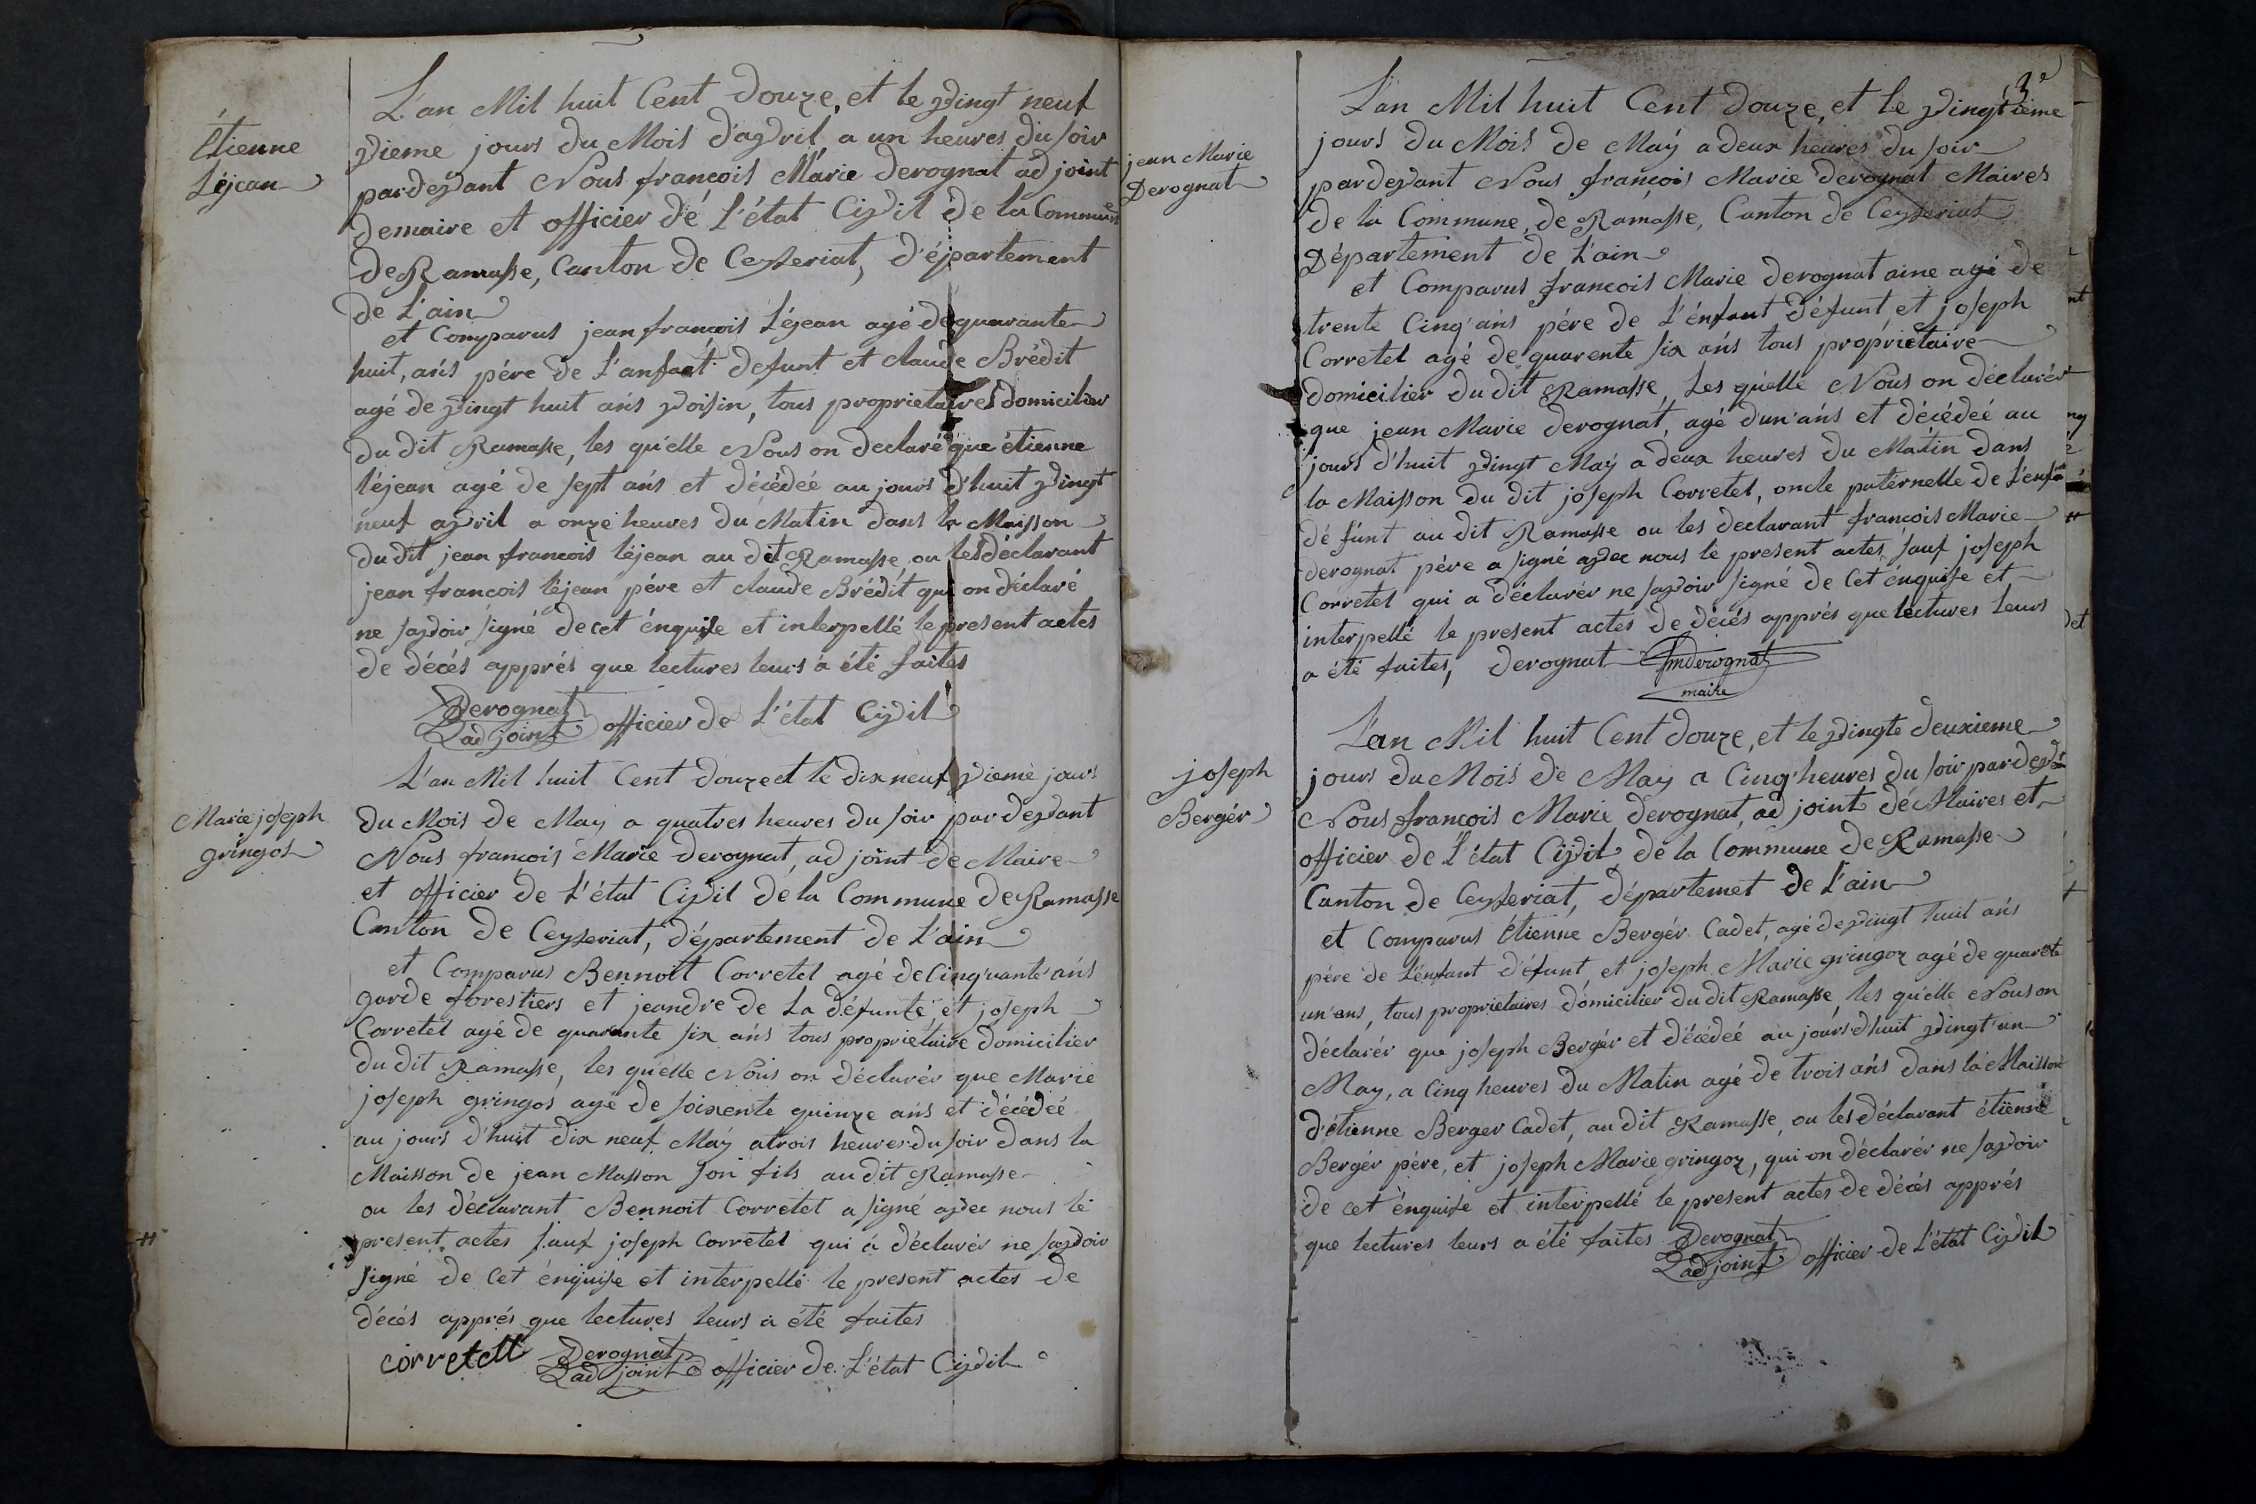 Étienne
Léjean
L'an Mil huit Cent douze, et le vingt neuf
vieme jours du Mois d'avril a un heures du soir
pardevant Nous françois Marie derognat ad joint
demaire et officier dé L'état Civil de la Commune
de Ramasse, Canton de Ceyzeriat, d'épartement
de L'ain
et Comparus jean françois Léjean agé de quarante
huit, ans pére de L'anfant defunt et claude Brédit
agé de vingt huit ans voisin, tous proprietaires domicilier
du dit Ramasse, les qu'elle Nous on declaré que étienne
léjean agé de sept ans et décédeé au jours d'huit vingt
neuf avril a onze heures du Matin dans la Maisson
du dit jean françois léjean au dit Ramasse, ou les déclarant
jean françois léjean pére et claude Brédit qui on déclaré
ne savoir signé de cet énquise et interpellé le present actes
de décés apprés que lectures leurs a été faites
Derognat
ad joint officier de L'état Civil
Marie joseph
gringos
L'an Mil huit Cent douze et le dix neuf vieme jours
du Mois de May a quatres heures du soir par devant
Nous françois Marie derognat, ad joint de Maire
et officier de L'état Civil de la Commune de Ramasse
Canton de Ceyzeriat, d'épartement de L'ain
et Comparus Bennoit Corretel agé de Cinq'uante ans
garde forestiers et jeandre de La défunte, et joseph
Corretel agé de quarante six ans tous propriétaire domicilier
du dit Ramasse, les qu'elle Nous on déclarér que Marie
joseph gringos agé de soixente quinze ans et décédeé
au jours d'huit dix neuf May a trois heures du soir dans la
Maisson de jean Masson son fils au dit Ramasse
ou les déclarant Bennoit Corretel a signé avec nous le
present actes sauf joseph Corretel qui a déclarér ne savoir
signé de Cet énquise et interpellé le present actes de
décés apprés que lectures leurs a été faites
corretell Derognat
ad joint officier de L'état Civil
3e
jean Marie
Derognat
L'an Mil huit Cent douze, et le vingtieme
jours du Mois de May a deux heures du soir
pardevant Nous françois Marie derognat Maires
de la Commune, de Ramasse, Canton de Ceyzeriat
Département de L'ain
et Comparus françois Marie derognat aine agé de
trente Cinq'ans pére de L'énfant défunt et joseph
Corretel agé de quarente six ans tous propriétaire
domicilier du dit Ramasse, Les qu'elle Nous on déclarér
que jean Marie derognat, agé d'un'ans et décédeé au
jours d'huit vingt May a deux heures du Matin dans
la Maisson du dit joseph Corretel, oncle paternelle de L'enfant
défunt au dit Ramasse ou les declarant françois Marie
derognat pére a signé avec nous le present actes, sauf joseph
Corretel qui a déclarér ne savoir signé de Cet énquise et
interpellé le present actes de décés apprés que lectures leurs
a été faites, derognat fmderognat
maire
joseph
Bergér
L'an Mil huit Cent douze, et le vingte deuxieme
jours du Mois de May a Cinq'heures du soir pardevan
Nous françois Marie derognat, ad joint dé Maires et
officier de L'état Civil, de la Commune de Ramasse
Canton de Ceyzeriat, Départemet de L'ain
et Comparus Étienne Bergér Cadet, agé de vingt huit ans
pére de L'énfant d'éfunt, et joseph Marie gringoz agé de quarète
un'ans, tous proprietaires domicilier du dit Ramasse, les qu'elle Nous on
déclarér que joseph Bergér et décédeé au jours d'huit vingt'un
May, a Cinq heures du Matin agé de trois ans dans la Maisson
d'étienne Berger Cadet, au dit Ramasse, ou les déclarant étienne
Bergér pére, et joseph Marie gringoz, qui on déclarér ne savoir
de cet énquise et interpellé le present actes de décés apprés
que lectures leurs a été faites Derognat
ad joint officier de L'état Civil